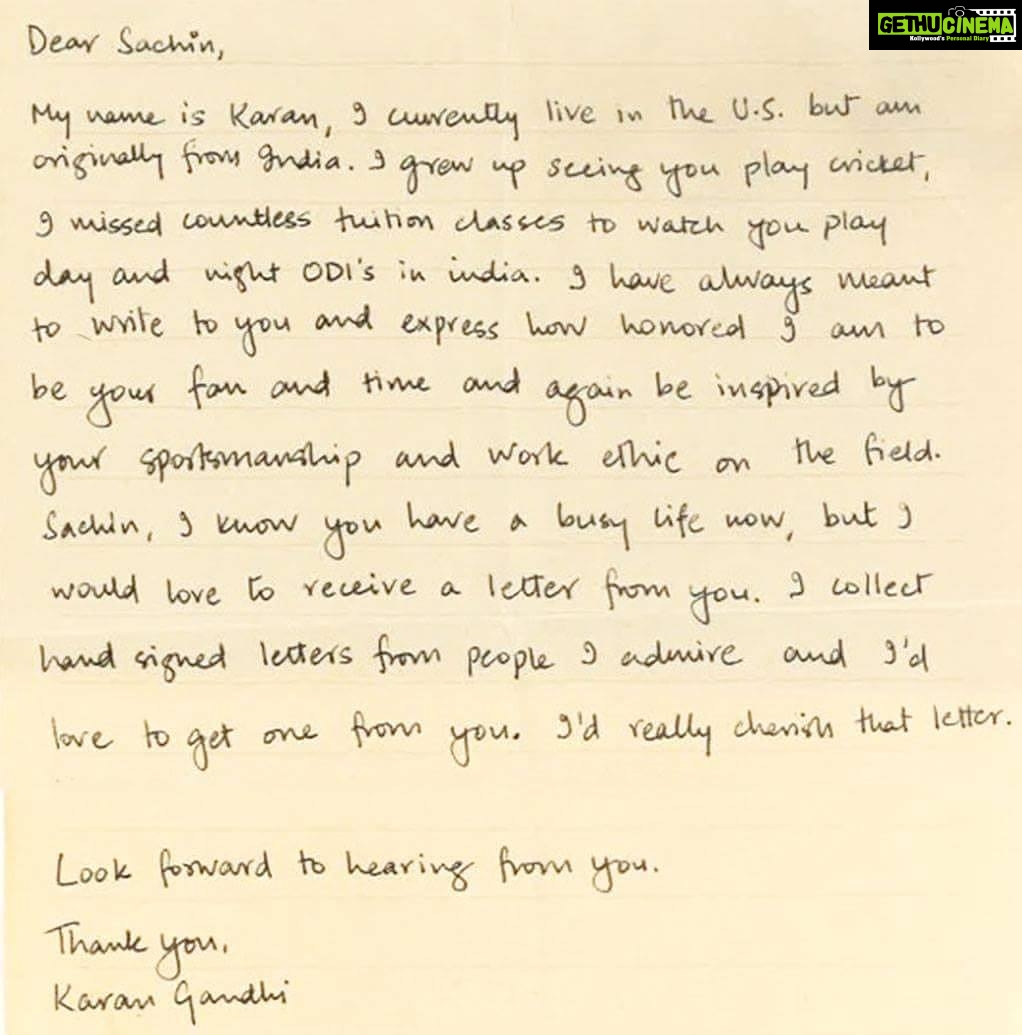 GETHUCINEMA
Kollywood's Personal Diary
Dear Sachin,
My name is Karan, I currently live in the U.S. but am
originally from India. I grew up seeing you play cricket,
I missed countless tuition classes to watch you play
day and night ODI's in india. I have always meant
to write to you and express how honored I am to
be your fan and time and again be inspired by
your sportsmanship and work ethic on the field.
Sachin, I know you have a busy life now, but I
would love to receive a letter from you. I collect
hand signed letters from people I admire and I'd
love to get one from you. I'd really cherish that letter.
Look forward to hearing from you.
Thank you.
Karan Gandhi